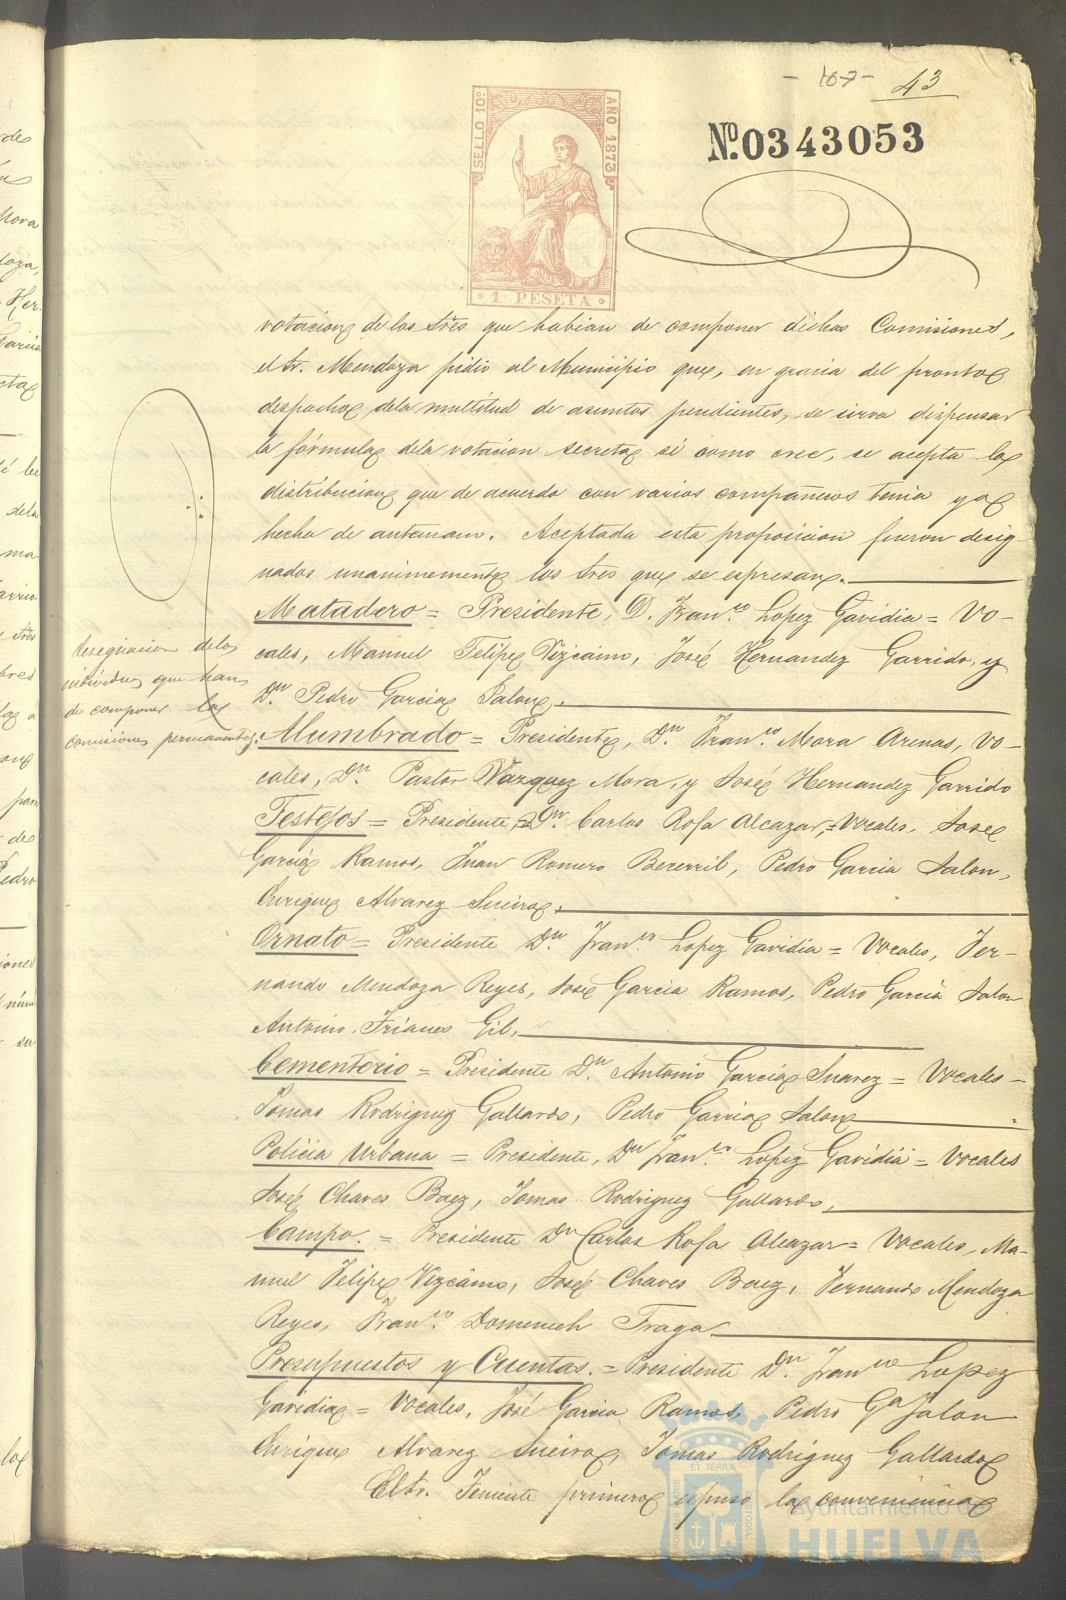 - 107 -
43
SELLO 10º
AÑO 1873
1 PESETA
Nº. 0343053
votacion de los tres que habian de componer dichas Comisiones,
el Sr. Mendoza pidio al Municipio que, en gracia del pronto
despacho dela multitud de asuntos pendientes, se sirva dispensar
la fórmula dela votacion secreta si como cree, se acepta la
distribucion que de acuerdo con varios compañeros tenia ya
hecha de antemano. Aceptada esta proposicion fueron desig-
nados unanimemente los tres que se espresan.
Matadero = Presidente, D. Fran.co Lopez Gavidia = Vo-
cales, Manuel Felipe Vizcaino, José Hernandez Garrido, y
Dn. Pedro Garcia Jalon.
Designacion delos
individuos que han
de componer las
comisiones permanentes.
Alumbrado = Presidente, Dn. Fran.co Mora Arenas, Vo-
cales, Dn. Pastor Vazquez Mora, y José Hernandez Garrido
Festejos = Presidente Dn. Carlos Rofa Alcazar, = Vocales, José
Garcia Ramos, Juan Romero Becerril, Pedro Garcia Jalon,
Enrique Alvarez Sueiro.
Ornato = Presidente Dn. Fran.co Lopez Gavidia = Vocales, Fer-
nando Mendoza Reyes, José Garcia Ramos, Pedro Garcia Jalon
Antonio Frianes Gil.
Cementerio = Presidente Dn. Antonio Garcia Suarez = Vocales -
Tomas Rodriguez Gallardo, Pedro Garcia Jalon
Policia Urbana = Presidente, Dn Fran.co Lopez Gavidia = Vocales
José Chaves Baez, Tomas Rodriguez Gallardo,
Campo. = Presidente Dn Carlos Rofa Alcazar = Vocales, Ma-
nuel Felipe Vizcaino, José Chaves Baez, Fernando Mendoza
Reyes, Fran.co Domenech Fraga
Presupuestos y Cuentas. = Presidente Dn. Fran.co Lopez
Gavidia = Vocales, José Garcia Ramos, Pedro Ga Jalon
Enrique Alvarez Sueiro, Tomas Rodriguez Gallardo
El Sr. Teniente primero espuso la conveniencia
Ayuntamiento de
HUELVA